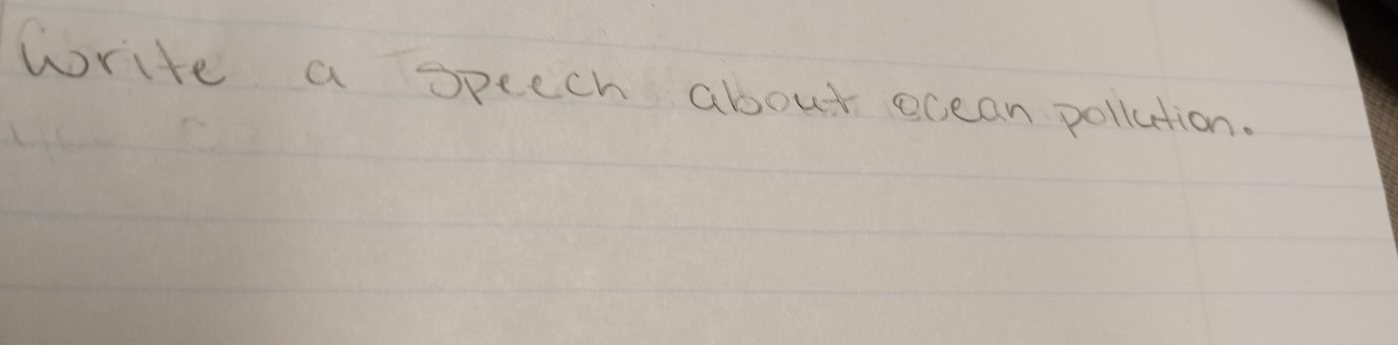 Write a speech about ocean pollution.